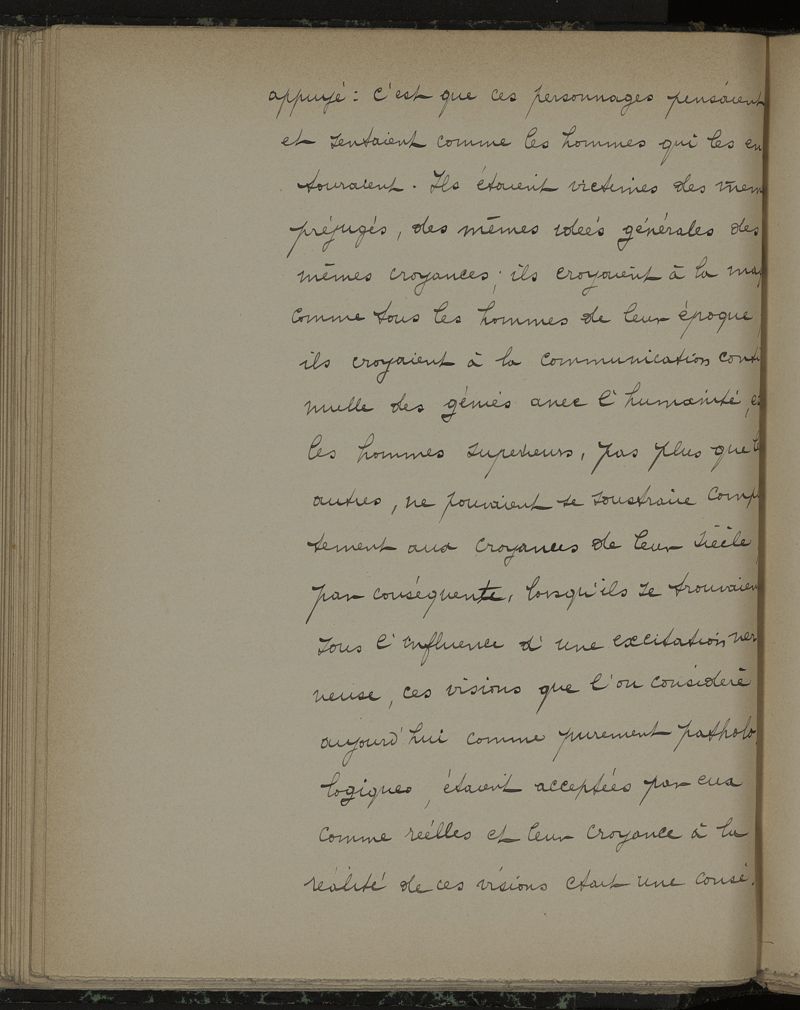 appuyé : c'est que ces personnages pensaient
et sentaient comme les hommes qui les en
touraient. Ils étaient victimes des mem
préjugés, des mêmes ideés générales des
mêmes croyances ; ils croyaient à la mag
comme tous les hommes de leur époque,
ils croyaient à la communication conti
nuelle des génies avec l'humanité, et
les hommes superieurs, pas plus que le
autres, ne pouvaient se soustraire comp
tement aux croyances de leur siècle,
par conséquente, lorsqu'ils se trouvaien
sous l'influence d'une excitation ner
veuse, ces visions que l'on considère
aujourd'hui comme purement patholo
logiques, étaient acceptées par eux
comme reélles et leur croyance à la
réalité de ces visions était une consé.